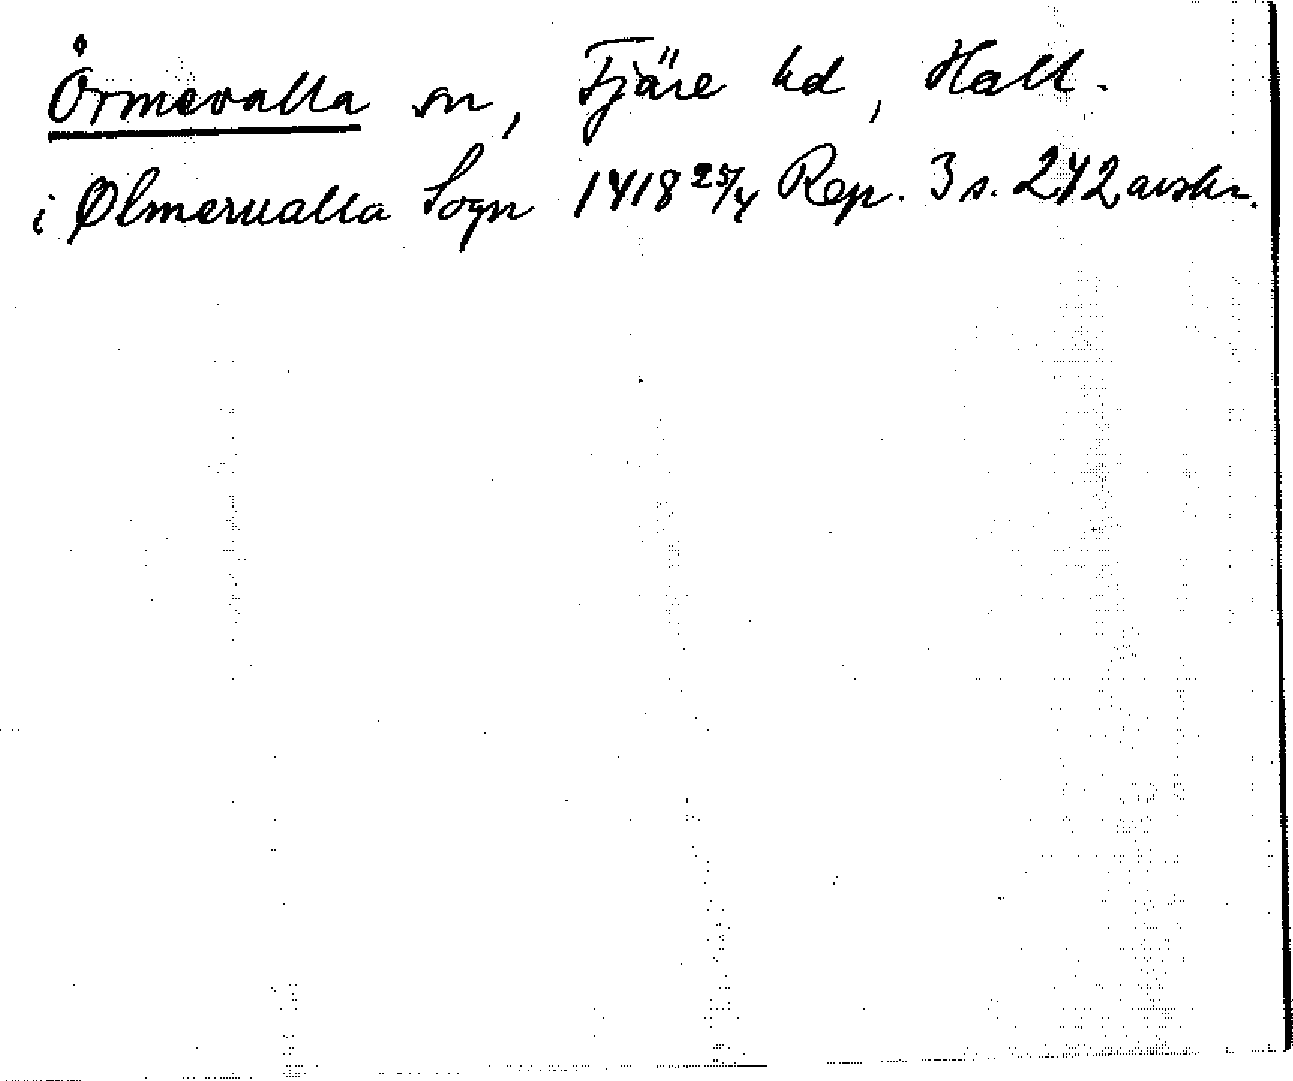 Örmevalla sn, Fjäre hd, Hall.
i Ølmerualla Sogn 1418 25/4 Rep. 3 s. 242 avskr.